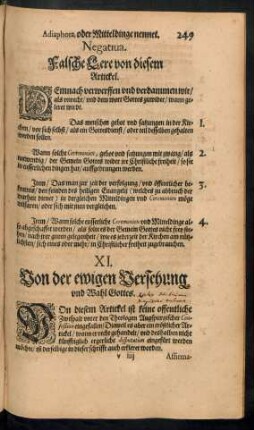 Adiaphora, oder Mitteldinge nennet. 249
Negatiua.
Falsche Lere von diesem
Artickel.
DEmnach verwerffen vnd verdammen wir/
als vnrecht/ vnd dem wort Gottes zuwider/ wann ge-
leret wirdt.
Das menschen gebot vnd satzungen in der Kir- 1.
chen/ vor sich selbst/ als ein Gottesdienst/ oder teil desselben gehalten
werden sollen.
Wann solche Ceremonien, gebot vnd satzungen mit zwang/ als 2.
notwendig/ der Gemein Gottes wider ire Christliche freyheit/ so sie
in eusserlichen dingen hat/ auffgedrungen werden.
Item/ Das man zur zeit der verfolgung/ vnd öffentlicher be- 3.
kentnus/ den feinden des heiligen Euangelij/ (welchs zu abbruch der
warheit dienet) in dergleichen Mitteldingen vnd Ceremonien möge
willfaren/ oder sich mit inen vergleichen.
Item/ Wann solche eusserliche Ceremonien vnd Mitteldinge al- 4.
so abgeschaffet werden/ als solte es der Gemein Gottes nicht frey ste-
hen/ nach irer guten gelegenheit/ wie es jederzeit der Kirchen am nütz-
lichsten/ sich eines oder mehr/ in Christlicher freyheit zugebrauchen.
XI.
Von der ewigen Versehung
vnd Wahl Gottes.
VOn diesem Artickel ist keine offentliche
Zweyspalt vnter den Theologen Augspurgischer Con-
fession eingefallen/ Dieweil es aber ein tröstlicher Ar-
tickel/ wann er recht gehandelt/ vnd deshalben nicht
künfftiglich ergerliche disputation eingefüret werden
möchte/ ist derselbige in dieser Schrifft auch erkleret worden.
v iiij Affirma-